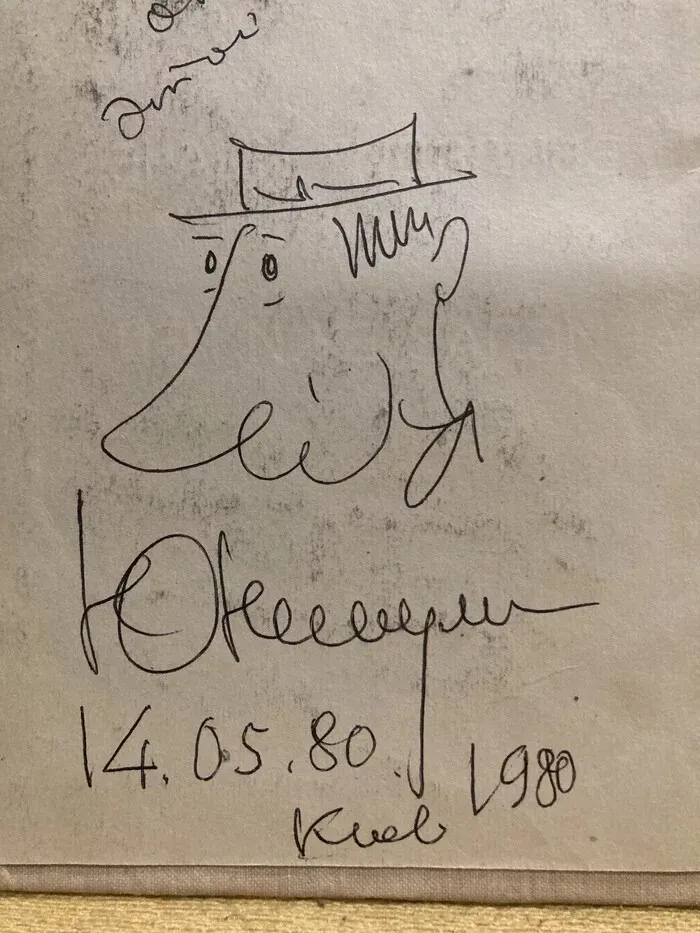 ЮНикулин
14.05.80. 1980
Киев